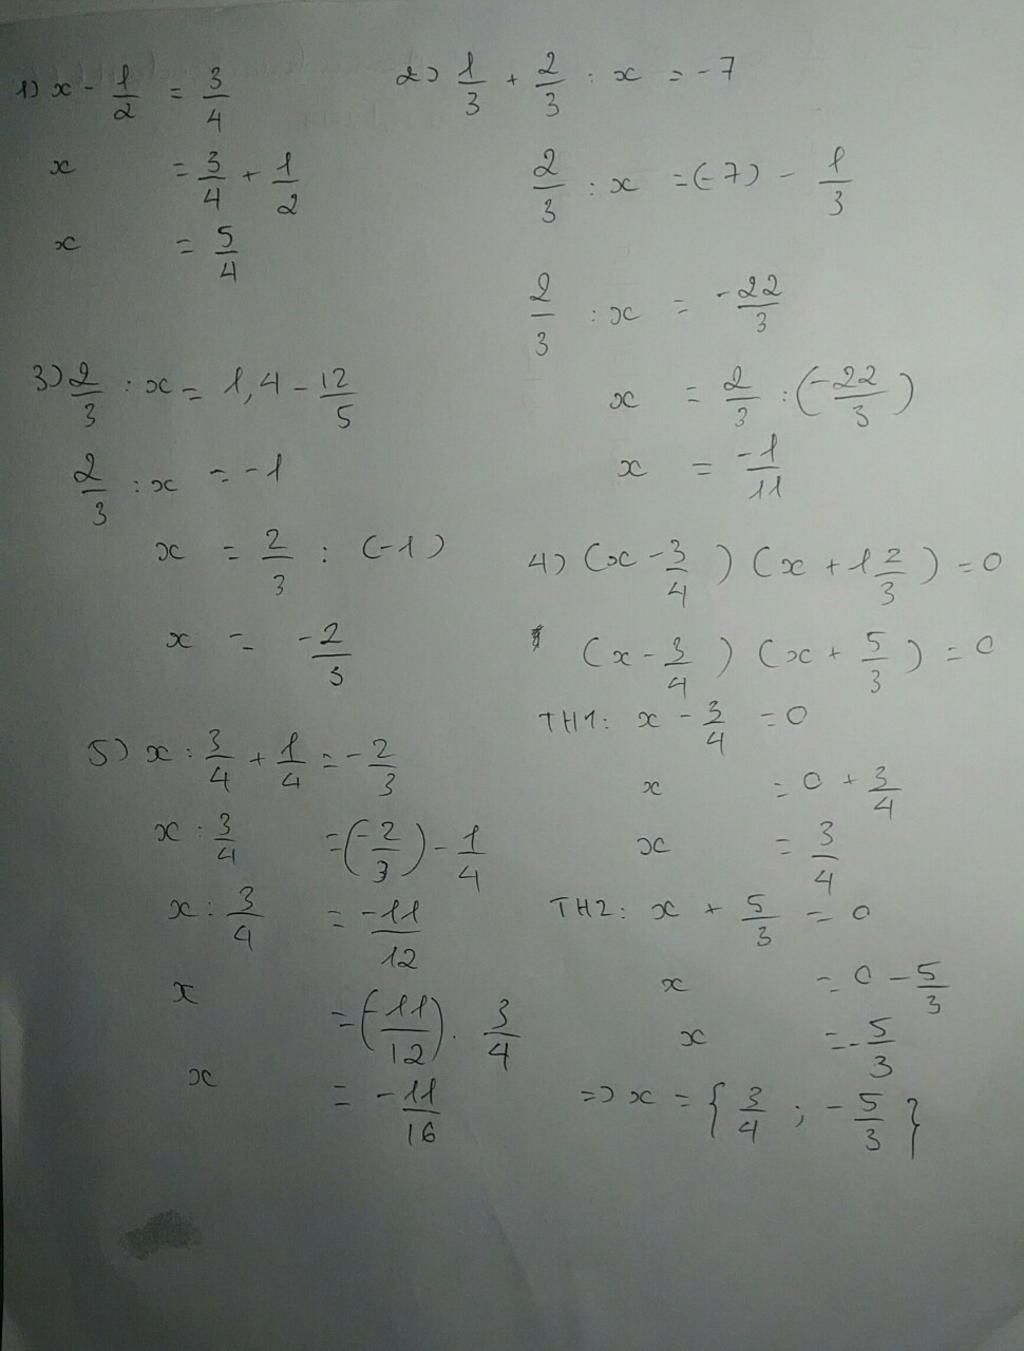 1) x - 1/2 = 3/4
x = 3/4 + 1/2
x = 5/4
2) 1/3 + 2/3 : x = -7
2/3 : x = (-7) - 1/3
2/3 : x = -22/3
x = 2/3 : (-22/3)
x = -1/11
3) 2/3 : x = 1,4 - 12/5
2/3 : x = -1
x = 2/3 : (-1)
x = -2/3
4) (x - 3/4) (x + 1 2/3) = 0
(x - 3/4) (x + 5/3) = 0
TH1: x - 3/4 = 0
x = 0 + 3/4
x = 3/4
TH2: x + 5/3 = 0
x = 0 - 5/3
x = -5/3
=> x = { 3/4 ; -5/3 }
5) x : 3/4 + 1/4 = -2/3
x : 3/4 = (-2/3) - 1/4
x : 3/4 = -11/12
x = (-11/12) . 3/4
x = -11/16